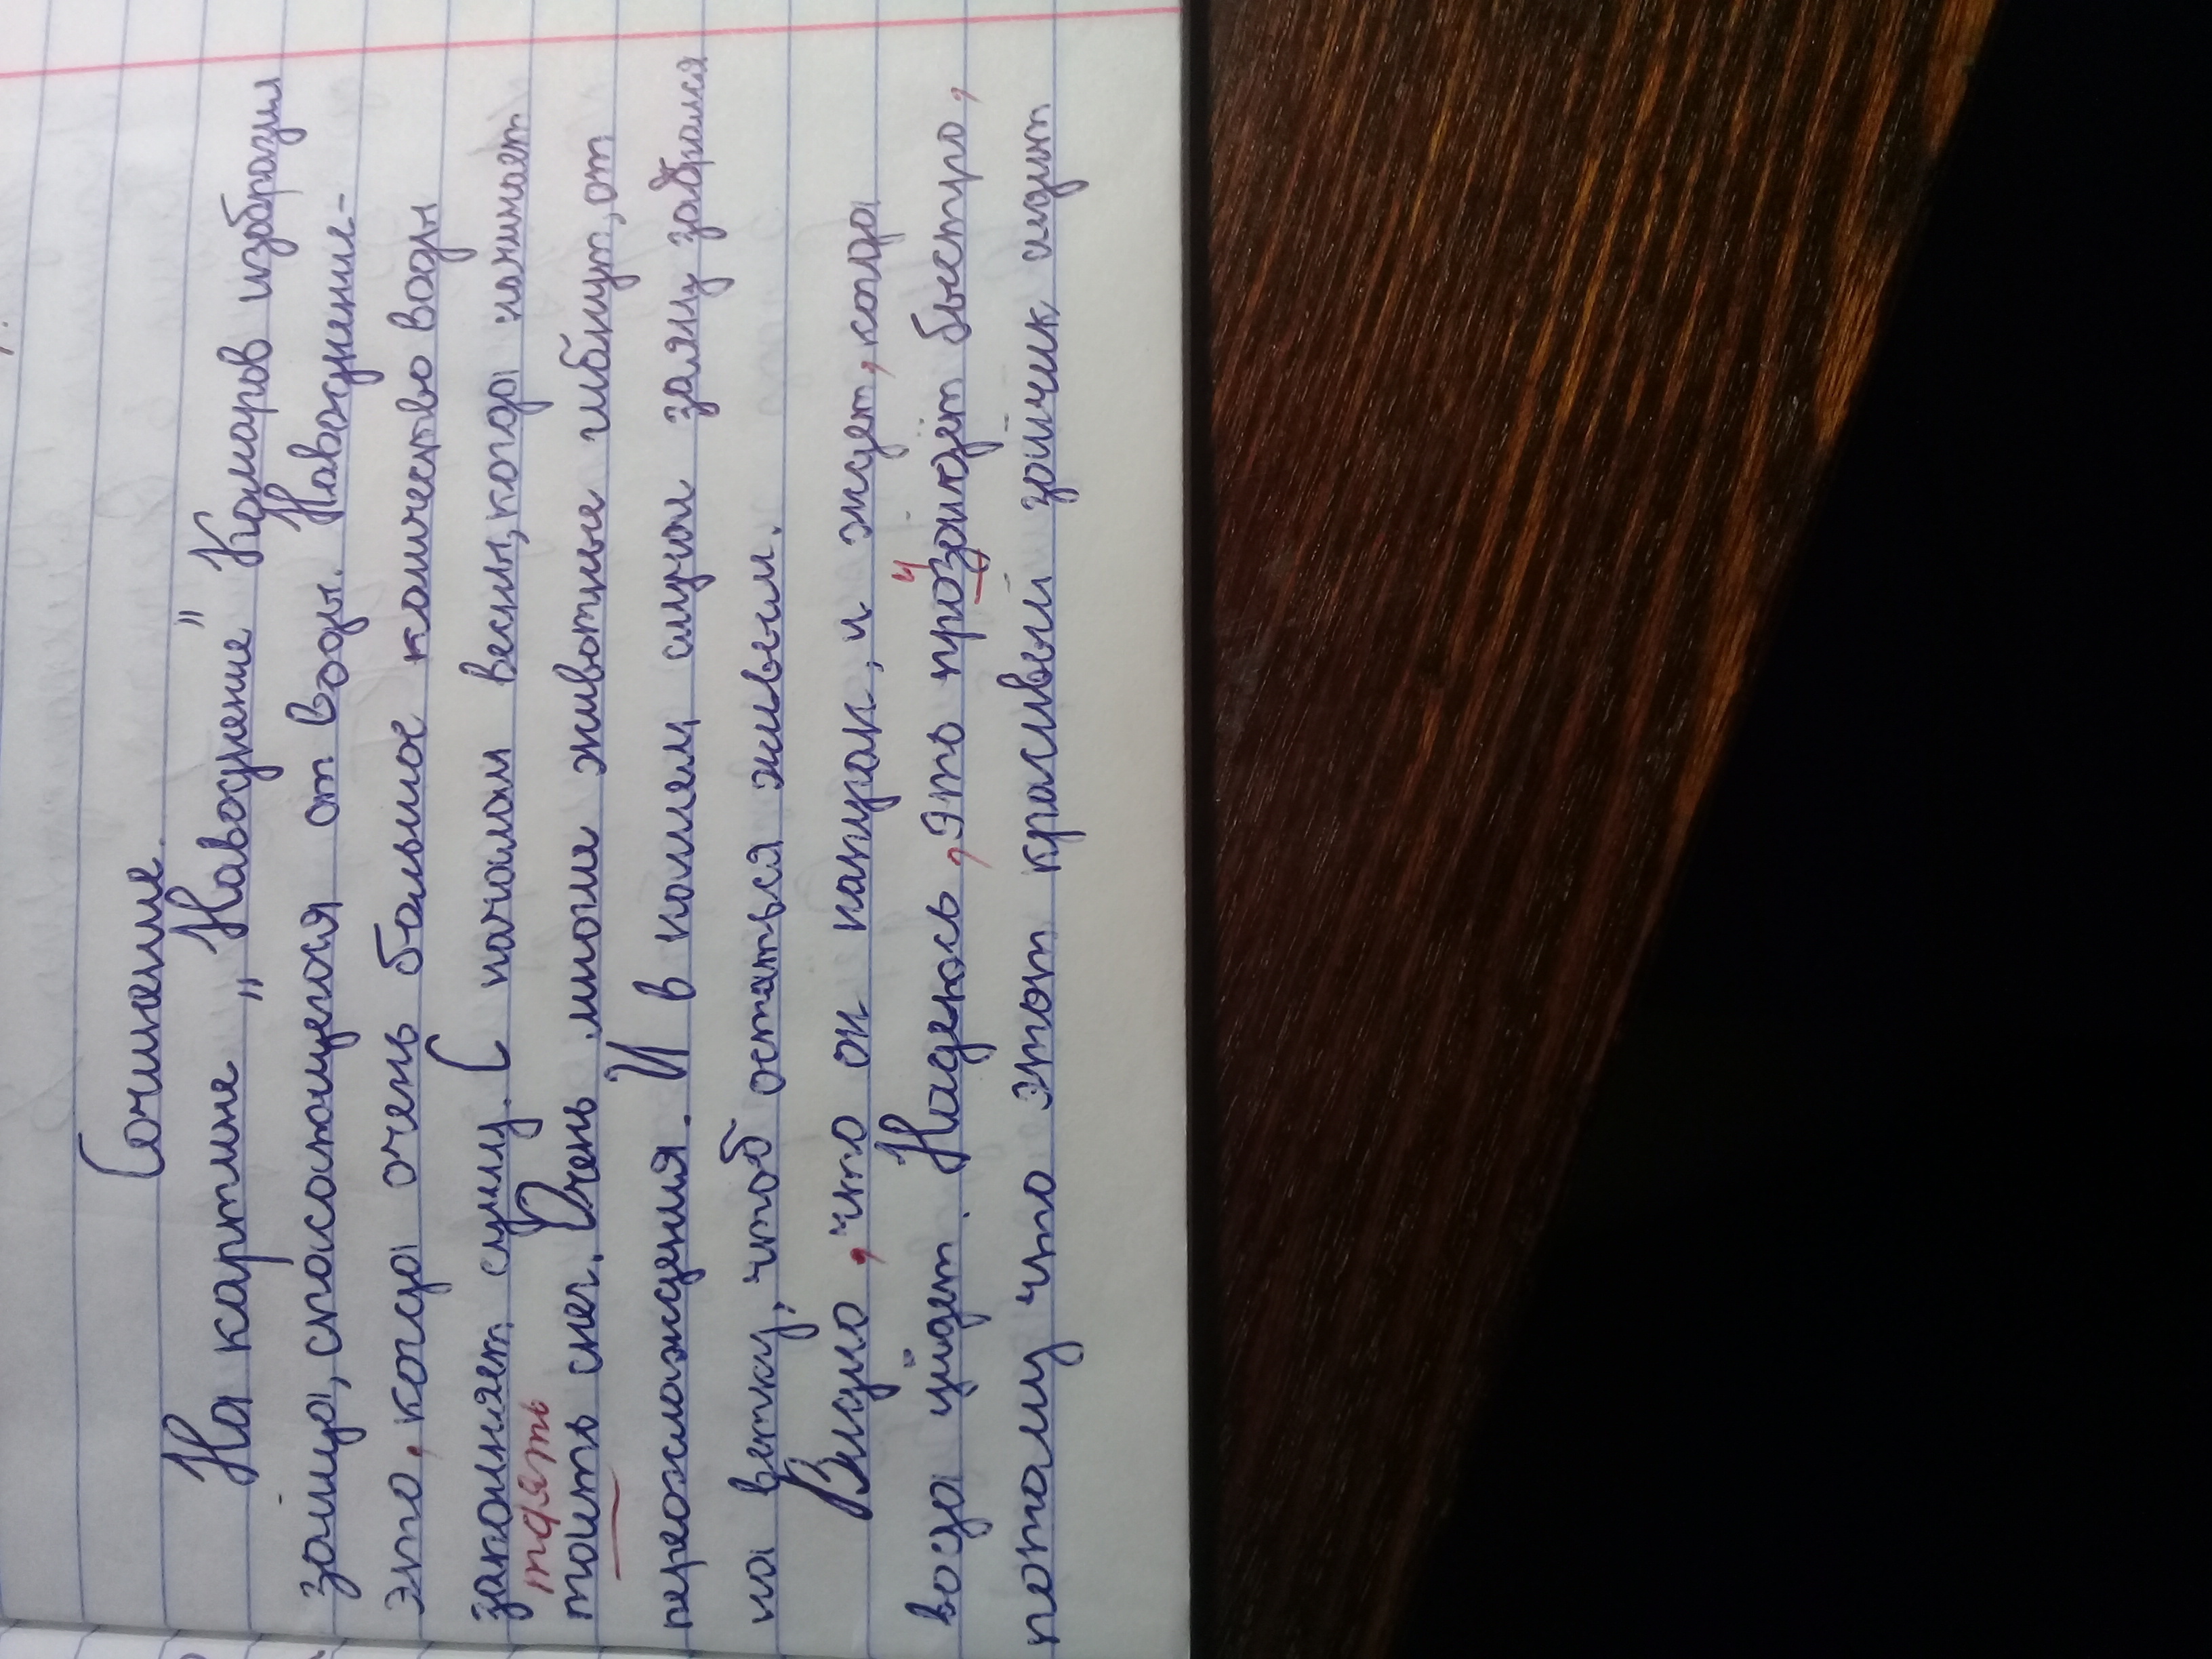 Сочинение.
На картине „Наводнение" Комаров изобразил
зайца, спасающегося от воды. Наводнение-
это, когда очень большое количество воды
заполняет сушу. С началом весны, когда начинает
таять
таить снег. Очень многие животные гибнут, от
переохлаждения. И в нашем случаи заяц забрался
на ветку, чтоб остаться живым.
Видно, что он напуган, и ждет, когда
вода уйдет. Надеюсь, это прозойдёт быстро,
потому что этот красивый зайчик